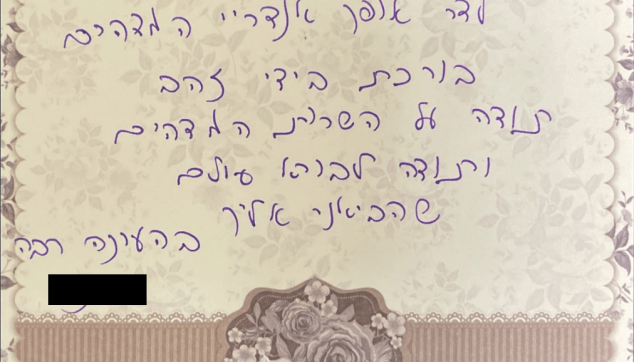 לדר אופק אנדריי המדהים
בורכת בידי זהב
תודה על השרות המדהים
ותודה לבורא עולם
שהביאני אליך
בהערכה רבה